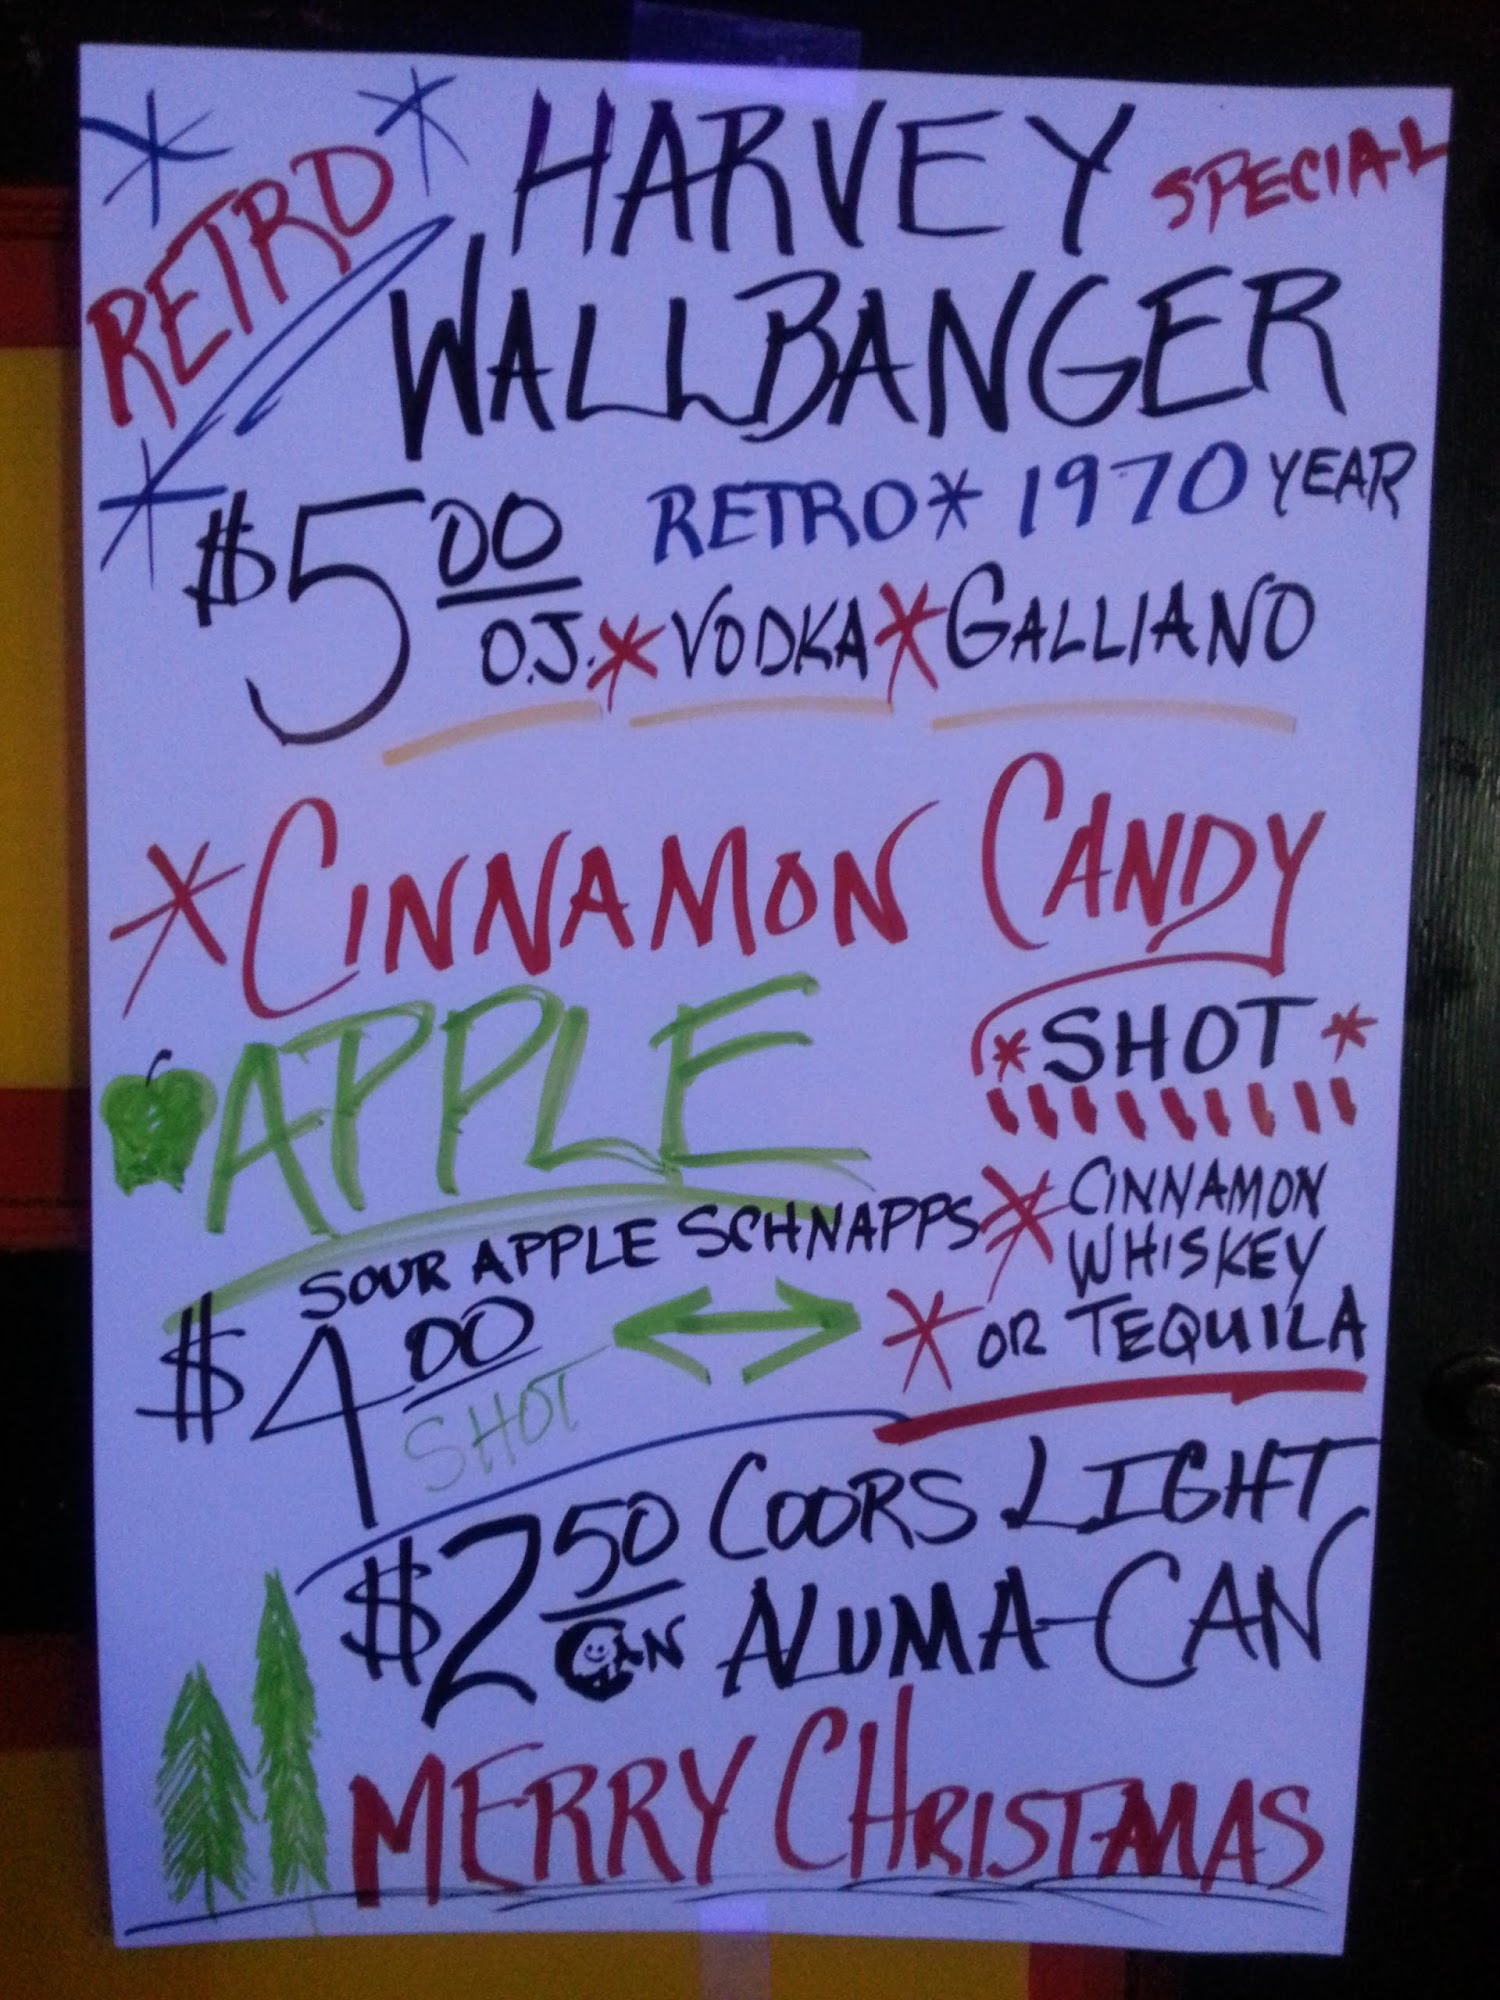 RETRO
HARVEY SPECIAL
WALLBANGER
$5.00 RETRO * 1970 YEAR
O.J. * VODKA * GALLIANO
* CINNAMON CANDY
APPLE
* SHOT *
SOUR APPLE SCHNAPPS * CINNAMON
WHISKEY
$4.00 * OR TEQUILA
SHOT
$2.50 COORS LIGHT
CAN ALUMA-CAN
MERRY CHRISTMAS